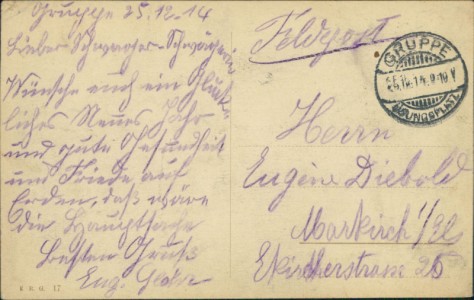 Gruppe 25.12.14
Lieber Schwager-Schwägerin
Wünsche euch ein Glück-
liches Neues Jahr
und gute Gesundheit
und Friede auf
Erden, daß wäre
die Hauptsache
Besten Gruß
Eug.
Feldpost
GRUPPE
ÜBUNGSPLATZ
Herrn
Eugène Diebold
Markirch i/El
Kircherstrasse 26
E.R.G. 17